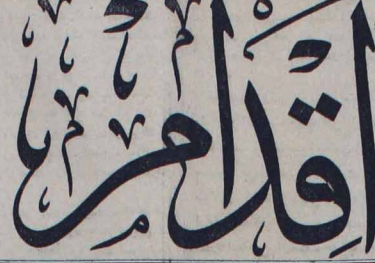 اقدام